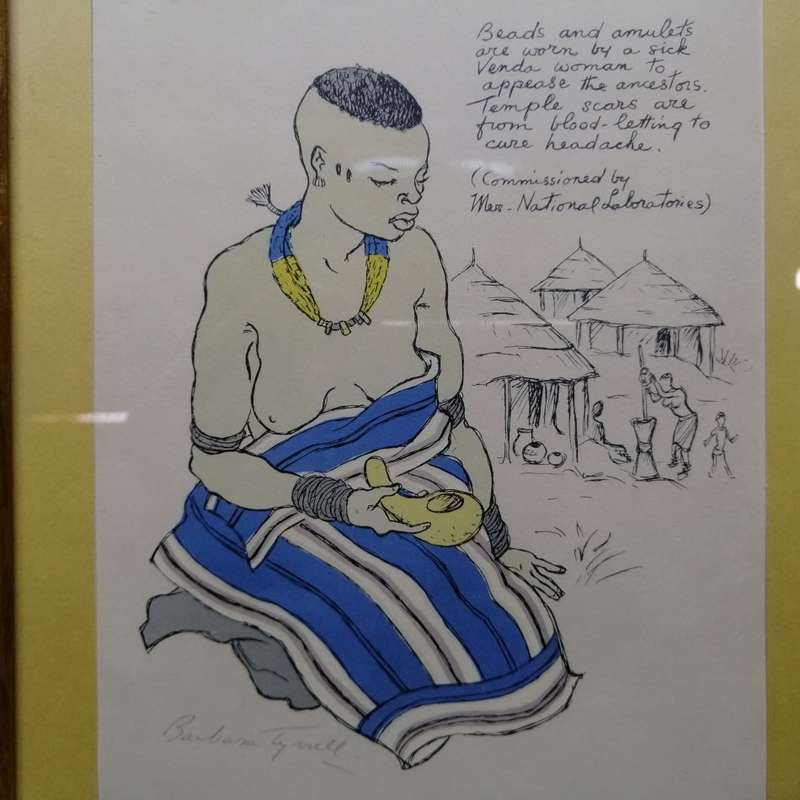 Beads and amulets
are worn by a sick
Venda woman to
appease the ancestors.
Temple scars are
from blood-letting to
cure headache.
(Commissioned by
Mer-National Laboratories)
Barbara Tyrrell.